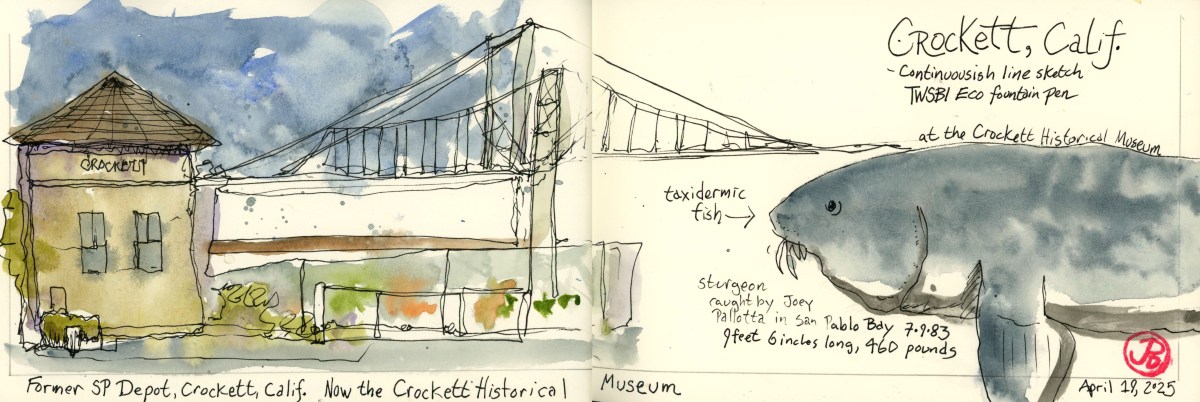 CROCKETT
Former SP Depot, Crockett, Calif. Now the Crockett Historical Museum
Crockett, Calif.
- Continuousish line sketch
TWSBI Eco fountain pen
at the Crockett Historical Museum
taxidermic
fish →
sturgeon
caught by Joey
Pallotta in San Pablo Bay 7.9.83
9feet 6inches long, 460 pounds
April 19, 2025